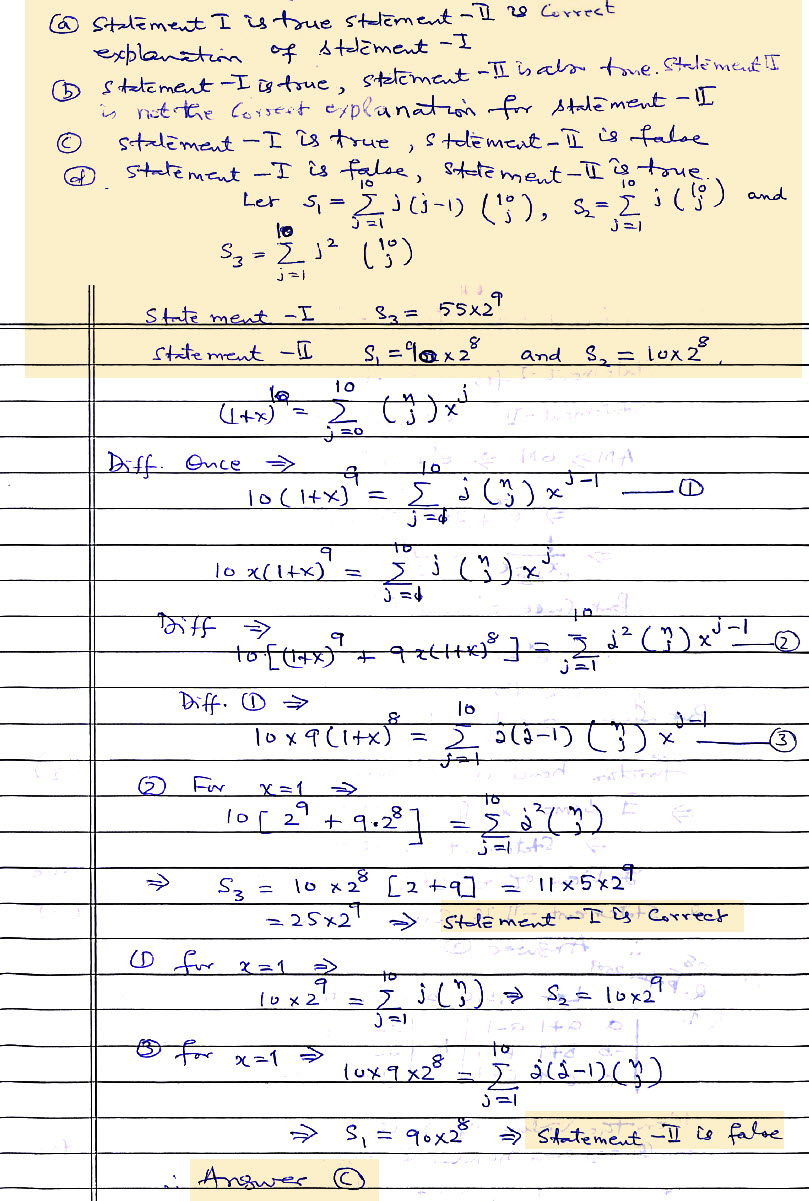 (a) Statement I is true statement-II is Correct
explanation of statement-I
(b) Statement-I is true, statement-II is also true. Statement II
is not the Correct explanation for statement-II
(c) Statement-I is true, statement-II is false
(d) Statement-I is false, statement-II is true.
Let S₁ = ∑_{j=1}^{10} j(j-1) (10 j), S₂ = ∑_{j=1}^{10} j (10 j) and
S₃ = ∑_{j=1}^{10} j² (10 j)
Statement-I S₃ = 55×2⁹
Statement-II S₁ = 90×2⁸ and S₂ = 10×2⁸.
(1+x)^{10} = ∑_{j=0}^{10} (n j) x^j
Diff. Once ⇒
10(1+x)⁹ = ∑_{j=1}^{10} j (n j) x^{j-1} —— ①
10x(1+x)⁹ = ∑_{j=1}^{10} j (n j) x^j
Diff ⇒
10[(1+x)⁹ + 9x(1+x)⁸] = ∑_{j=1}^{10} j² (n j) x^{j-1} —— ②
Diff. ① ⇒
10×9(1+x)⁸ = ∑_{j=1}^{10} j(j-1) (n j) x^{j-1} —— ③
② For x=1 ⇒
10[2⁹ + 9·2⁸] = ∑_{j=1}^{10} j² (n j)
⇒ S₃ = 10×2⁸ [2+9] = 11×5×2⁹
= 25×2⁹ ⇒ Statement-I is Correct
① for x=1 ⇒
10×2⁹ = ∑_{j=1}^{10} j (n j) ⇒ S₂ = 10×2⁹
③ for x=1 ⇒
10×9×2⁸ = ∑_{j=1}^{10} j(j-1) (n j)
⇒ S₁ = 90×2⁸ ⇒ Statement-II is false
∴ Answer (c)